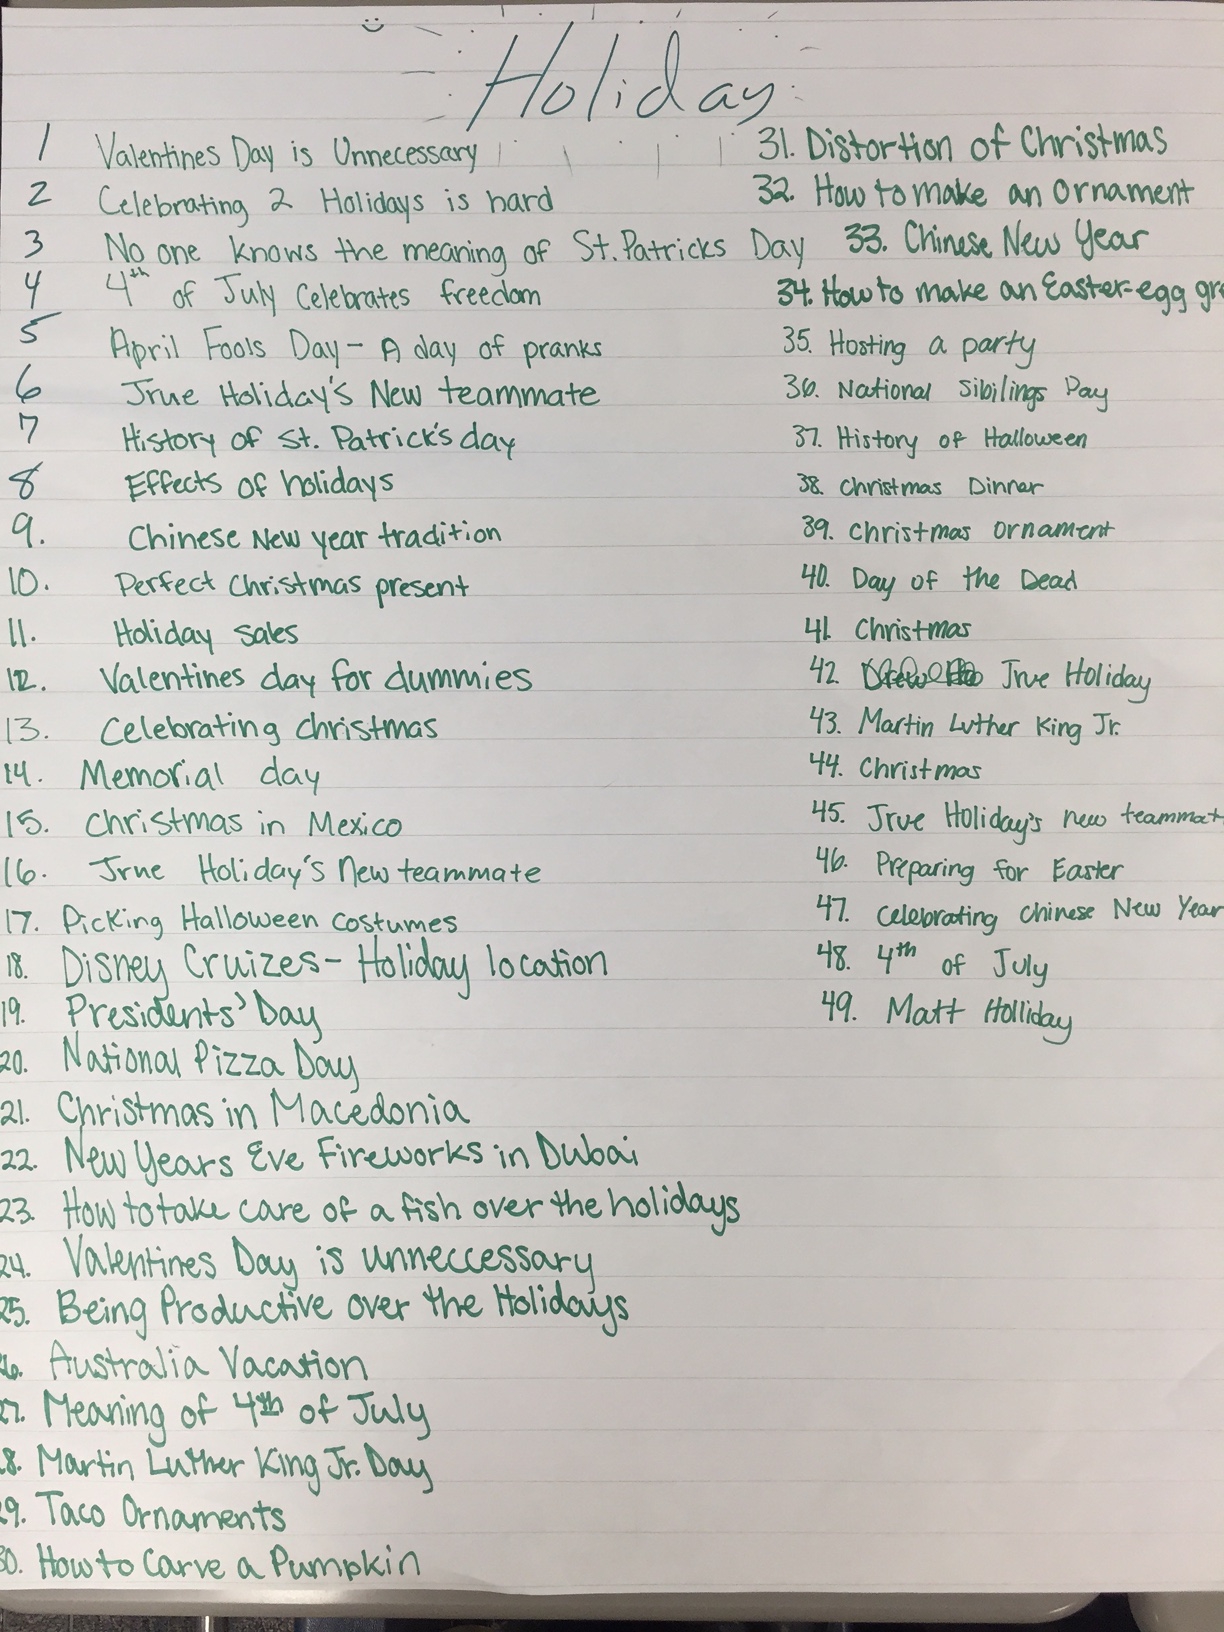 Holiday
1 Valentines Day is Unnecessary
2 Celebrating 2 Holidays is hard
3 No one knows the meaning of St. Patricks Day
4 4th of July Celebrates freedom
5 April Fools Day - A day of pranks
6 Jrue Holiday's New teammate
7 History of St. Patrick's day
8 Effects of holidays
9. Chinese New year tradition
10. Perfect Christmas present
11. Holiday sales
12. Valentines day for dummies
13. Celebrating christmas
14. Memorial day
15. Christmas in Mexico
16. Jrue Holiday's New teammate
17. Picking Halloween costumes
18. Disney Cruizes - Holiday location
19. Presidents' Day
20. National Pizza Day
21. Christmas in Macedonia
22. New Years Eve Fireworks in Dubai
23. How to take care of a fish over the holidays
24. Valentines Day is unneccessary
25. Being Productive over the Holidays
26. Australia Vacation
27. Meaning of 4th of July
28. Martin Luther King Jr. Day
29. Taco Ornaments
30. How to Carve a Pumpkin
31. Distortion of Christmas
32. How to make an Ornament
33. Chinese New Year
34. How to make an Easter-egg gr
35. Hosting a party
36. National Sibilings Day
37. History of Halloween
38. Christmas Dinner
39. Christmas Ornament
40. Day of the Dead
41. Christmas
42. Jrue Holiday
43. Martin Luther King Jr.
44. Christmas
45. Jrue Holiday's new teammat
46. Preparing for Easter
47. Celebrating Chinese New Year
48. 4th of July
49. Matt Holliday